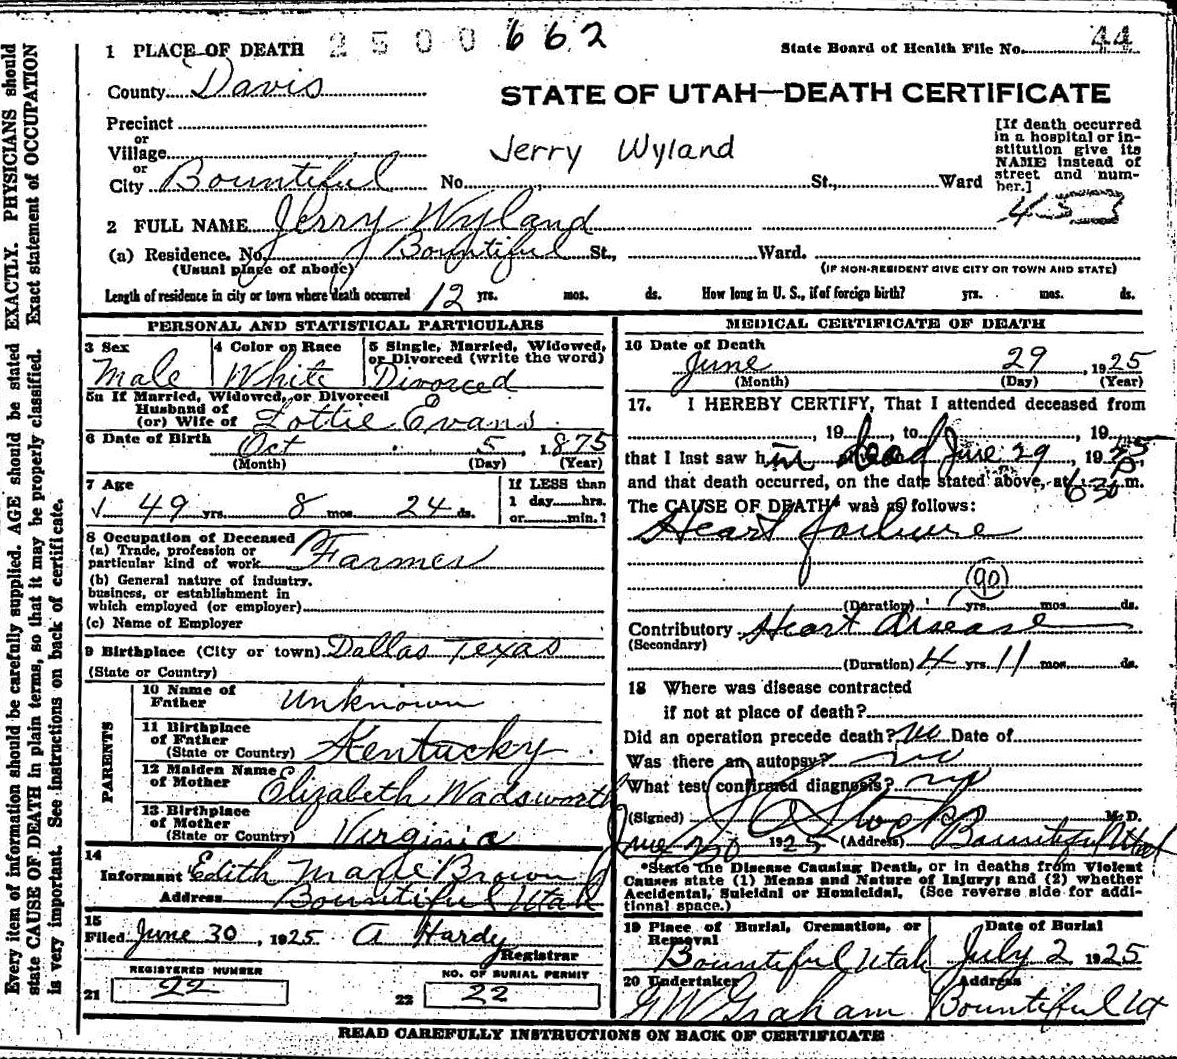 Every item of information should be carefully supplied. AGE should be stated EXACTLY. PHYSICIANS should
state CAUSE OF DEATH in plain terms, so that it may be properly classified. Exact statement of OCCUPATION
is very important. See instructions on back of certificate.
1 PLACE OF DEATH 2500662 State Board of Health File No. 44
County Davis
STATE OF UTAH—DEATH CERTIFICATE
Precinct
or
Village
or
City Bountiful No. St., Ward
Jerry Wyland
[If death occurred
in a hospital or in-
stitution give its
NAME instead of
street and num-
ber.]
453
2 FULL NAME Jerry Wyland
(a) Residence. No. Bountiful St., Ward.
(Usual place of abode) (IF NON-RESIDENT GIVE CITY OR TOWN AND STATE)
Length of residence in city or town where death occurred 12 yrs. mos. ds. How long in U. S., if of foreign birth? yrs. mos. ds.
PERSONAL AND STATISTICAL PARTICULARS
3 Sex 4 Color or Race 5 Single, Married, Widowed,
or Divorced (write the word)
Male White Divorced
5a If Married, Widowed, or Divorced
Husband of
(or) Wife of Lottie Evans
6 Date of Birth Oct 5, 1875
(Month) (Day) (Year)
7 Age If LESS than
1 day hrs.
or min.?
49 yrs. 8 mos. 24 ds.
8 Occupation of Deceased
(a) Trade, profession or
particular kind of work Farmer
(b) General nature of industry,
business, or establishment in
which employed (or employer)
(c) Name of Employer
9 Birthplace (City or town) Dallas Texas
(State or Country)
PARENTS
10 Name of
Father Unknown
11 Birthplace
of Father
(State or Country) Kentucky
12 Maiden Name
of Mother Elizabeth Wadsworth
13 Birthplace
of Mother
(State or Country) Virginia
14
Informant Edith Marie Brown
Address Bountiful Utah
15
Filed June 30, 1925 A Hardy
Registrar
REGISTERED NUMBER NO. OF BURIAL PERMIT
21 22 22 22
MEDICAL CERTIFICATE OF DEATH
16 Date of Death
June 29, 1925
(Month) (Day) (Year)
17. I HEREBY CERTIFY, That I attended deceased from
, 19 , to , 19
that I last saw him dead June 29, 1925
and that death occurred, on the date stated above, at 630 P m.
The CAUSE OF DEATH* was as follows:
Heart failure
90
(Duration) yrs. mos. ds.
Contributory Heart disease
(Secondary)
(Duration) 4 yrs. 11 mos. ds.
18 Where was disease contracted
if not at place of death?
Did an operation precede death? no Date of
Was there an autopsy? no
What test confirmed diagnosis?
(Signed) M. D.
June 1925 (Address) Bountiful Utah
*State the Disease Causing Death, or in deaths from Violent
Causes state (1) Means and Nature of Injury; and (2) whether
Accidental, Suicidal or Homicidal. (See reverse side for addi-
tional space.)
19 Place of Burial, Cremation, or
Removal Date of Burial
Bountiful Utah July 2 1925
20 Undertaker Address
G W Graham Bountiful Ut
READ CAREFULLY INSTRUCTIONS ON BACK OF CERTIFICATE